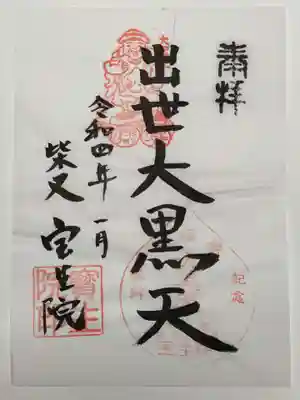 奉拝
出世大黒天
令和四年 一月
柴又 宝生院
寳生院
記念